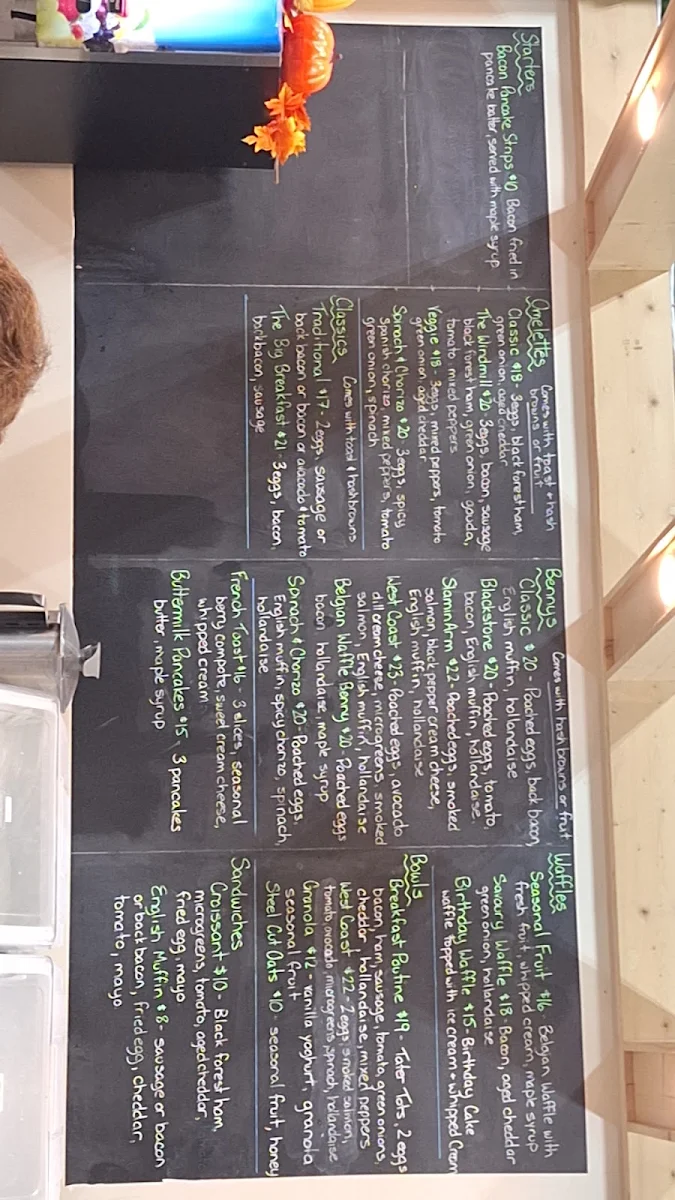 Starters
Bacon Pancake Strips $10 Bacon fried in
pancake batter, served with maple syrup
Omelettes Comes with toast + hash
browns or fruit
Classic $18 - 3eggs, black forest ham,
green onion, aged cheddar
The Windmill $20 - 3eggs, bacon, sausage
black forest ham, green onion, gouda,
tomato mixed peppers
Veggie $18 - 3eggs, mixed peppers, tomato
green onion, aged cheddar
Spinach & Chorizo $20 - 3eggs, spicy
spanish chorizo, mixed peppers, tomato
green onion, spinach
Classics Comes with toast & hashbrowns
Traditional $17 - 2eggs, sausage or
back bacon or bacon or avacado & tomato
The Big Breakfast $21 - 3eggs, bacon,
backbacon, sausage
Bennys Comes with hashbrowns or fruit
Classic $20 - Poached eggs, back bacon
English muffin, hollandaise
Blackstone $20 - Poached eggs, tomato,
bacon, English muffin, hollandaise.
SlamnArm $22 - Poached eggs, smoked
salmon, black pepper cream cheese,
English muffin, hollandaise
West Coast $23 - Poached eggs, avocado
dill cream cheese, microgreens, smoked
salmon, English muffin, hollandaise
Belgian Waffle Benny $20 - Poached eggs
bacon, hollandaise, maple syrup
Spinach & Chorizo $20 - Poached eggs,
English muffin, spicy chorizo, spinach,
hollandaise
French Toast $16 - 3 slices, seasonal
berry compote, sweet cream cheese,
whipped cream
Buttermilk Pancakes $15 3 pancakes
butter, maple syrup
Waffles
Seasonal Fruit $16 - Belgian Waffle with
fresh fruit, whipped cream, maple syrup
Savoury Waffle $18 - Bacon, aged cheddar
green onion, hollandaise
Birthday Waffle $15 - Birthday Cake
waffle topped with ice cream + whipped cream
Bowls
Breakfast Poutine $19 - Tater Tots, 2 eggs
bacon, ham, sausage, tomato, green onions,
cheddar, hollandaise, mixed peppers
West Coast $22 - 2 eggs, smoked salmon,
tomato, avocado, microgreens, spinach, hollandaise
Granola $12 - vanilla yoghurt, granola
seasonal fruit
Steel Cut Oats $10 - seasonal fruit, honey
Sandwiches
Croissant $10 - Black forest ham,
microgreens, tomato, aged cheddar,
fried egg, mayo
English Muffin $8 - sausage or bacon
or back bacon, fried egg, cheddar,
tomato, mayo